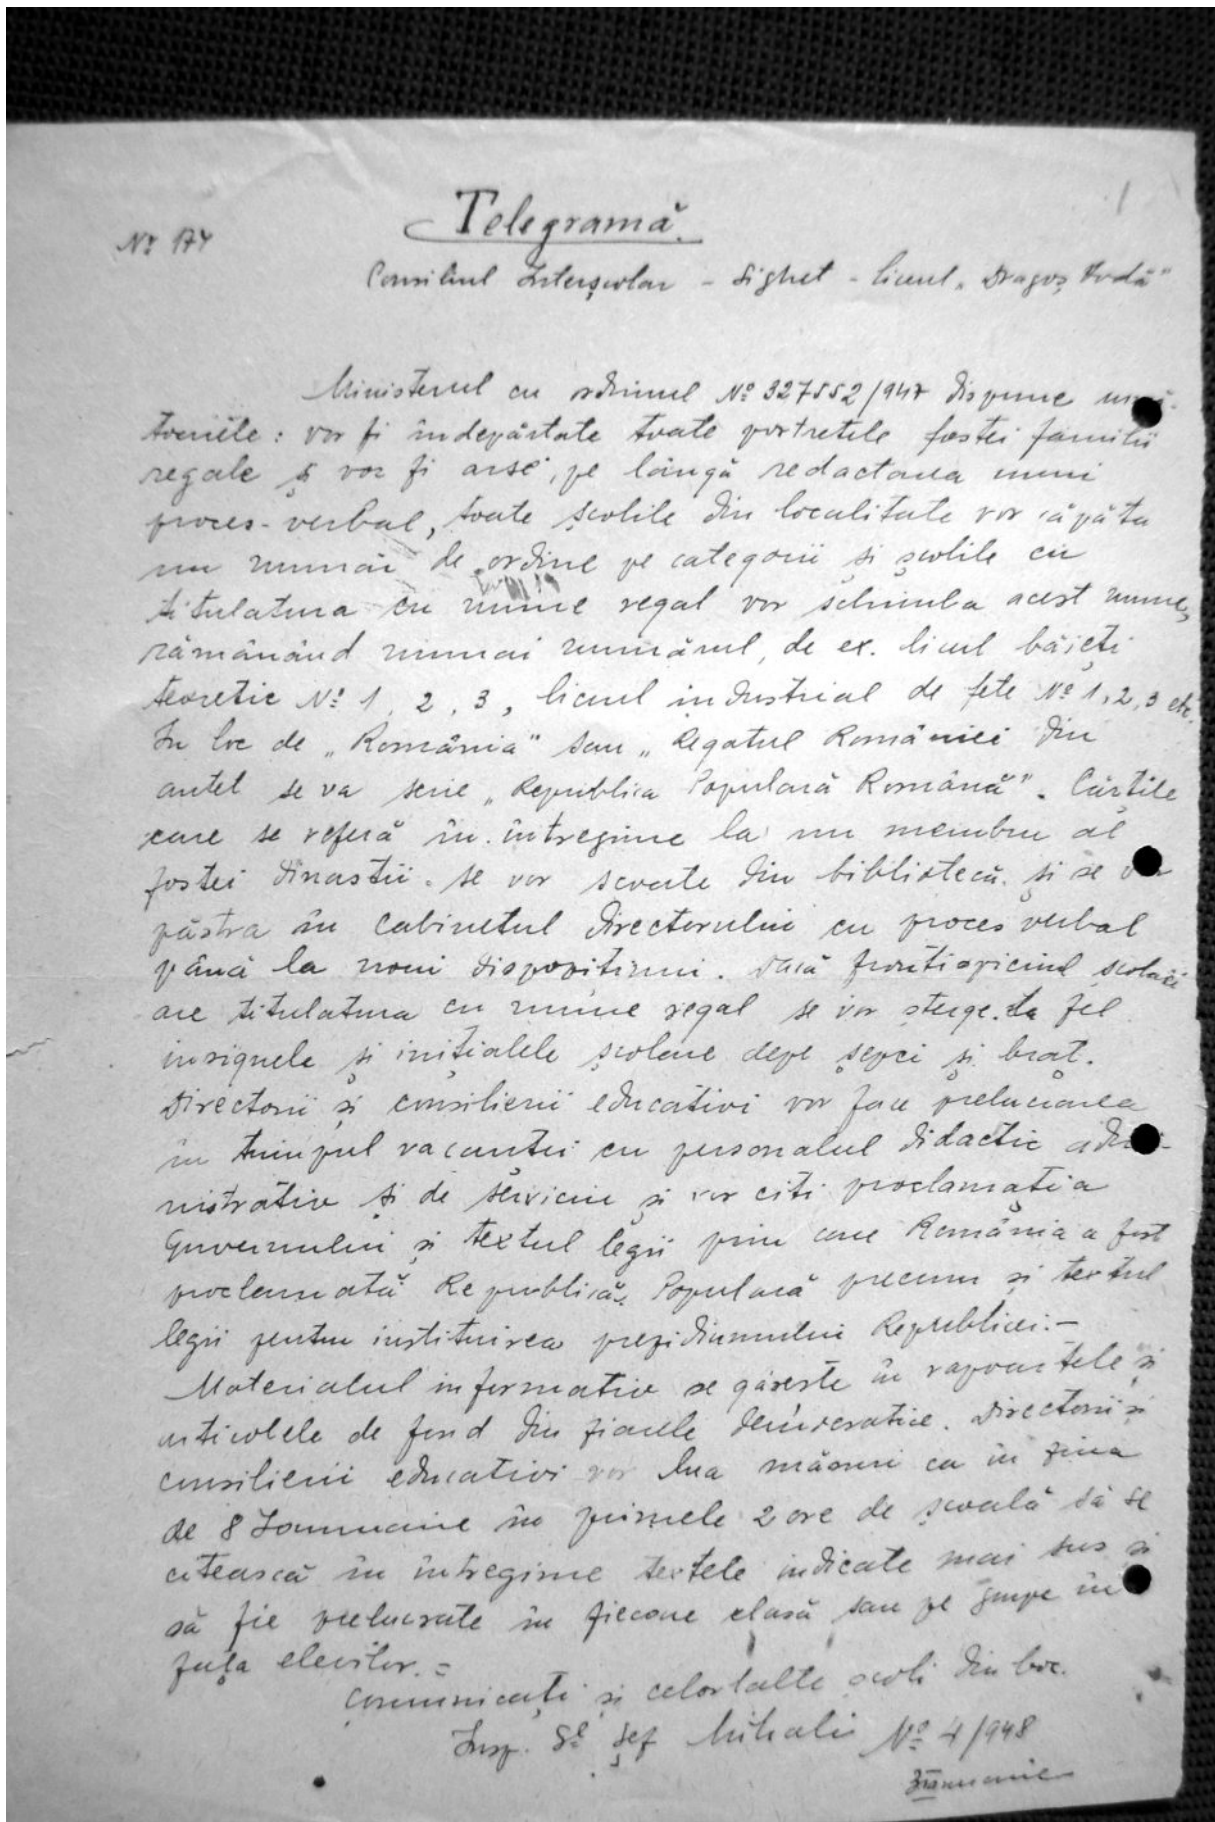 Telegramă
Nº 174
Consiliul Interșcolar - Sighet - liceul „Dragoș Vodă"
Ministerul cu ordinul Nº 327552/947 dispune urmă-
toarele: vor fi îndepărtate toate portretele fostei familii
regale și vor fi arse, pe lângă redactarea unui
proces-verbal, toate școlile din localitate vor căpăta
un număr de ordine pe categorii și școlile cu
titulatura cu nume regal vor schimba acest nume,
rămânând numai numărul, de ex. liceul băieți
teoretic Nº 1, 2, 3, liceul industrial de fete Nº 1, 2, 3 etc.
In loc de „România" sau „Regatul României din
antet se va scrie „Republica Populară Română". Cărțile
care se referă în întregime la un membru al
fostei dinastii se vor scoate din bibliotecă și se va
păstra în cabinetul directorului cu proces verbal
până la noui dispozitiuni. Dacă frontispiciul școlaii
are titulatura cu nume regal se vor șterge. La fel
insignele și inițialele școlare depe șepci și braț.
Directorii și consilierii educativi vor face prelucrarea
în timpul vacantei cu personalul didactic admi-
nistrativ și de serviciu și vor citi proclamația
Guvernului și textul legii prin care România a fost
proclamată Republică Populară precum și textul
legii pentru instituirea prezidiumului Republicei.-
Materialul informativ se găsește în rapoartele și
articolele de fond din ziarele democratice. Directorii și
consilierii educativi vor lua măsuri ca în ziua
de 8 Ianuarie în primele 2 ore de școală să se
citească în întregime textele indicate mai sus și
să fie prelucrate în fiecare clasă sau pe grupe în
fața elevilor.=
Comunicați și celorlalte școli din loc.
Insp. Șef Mihali Nº 4/948
Ianuarie